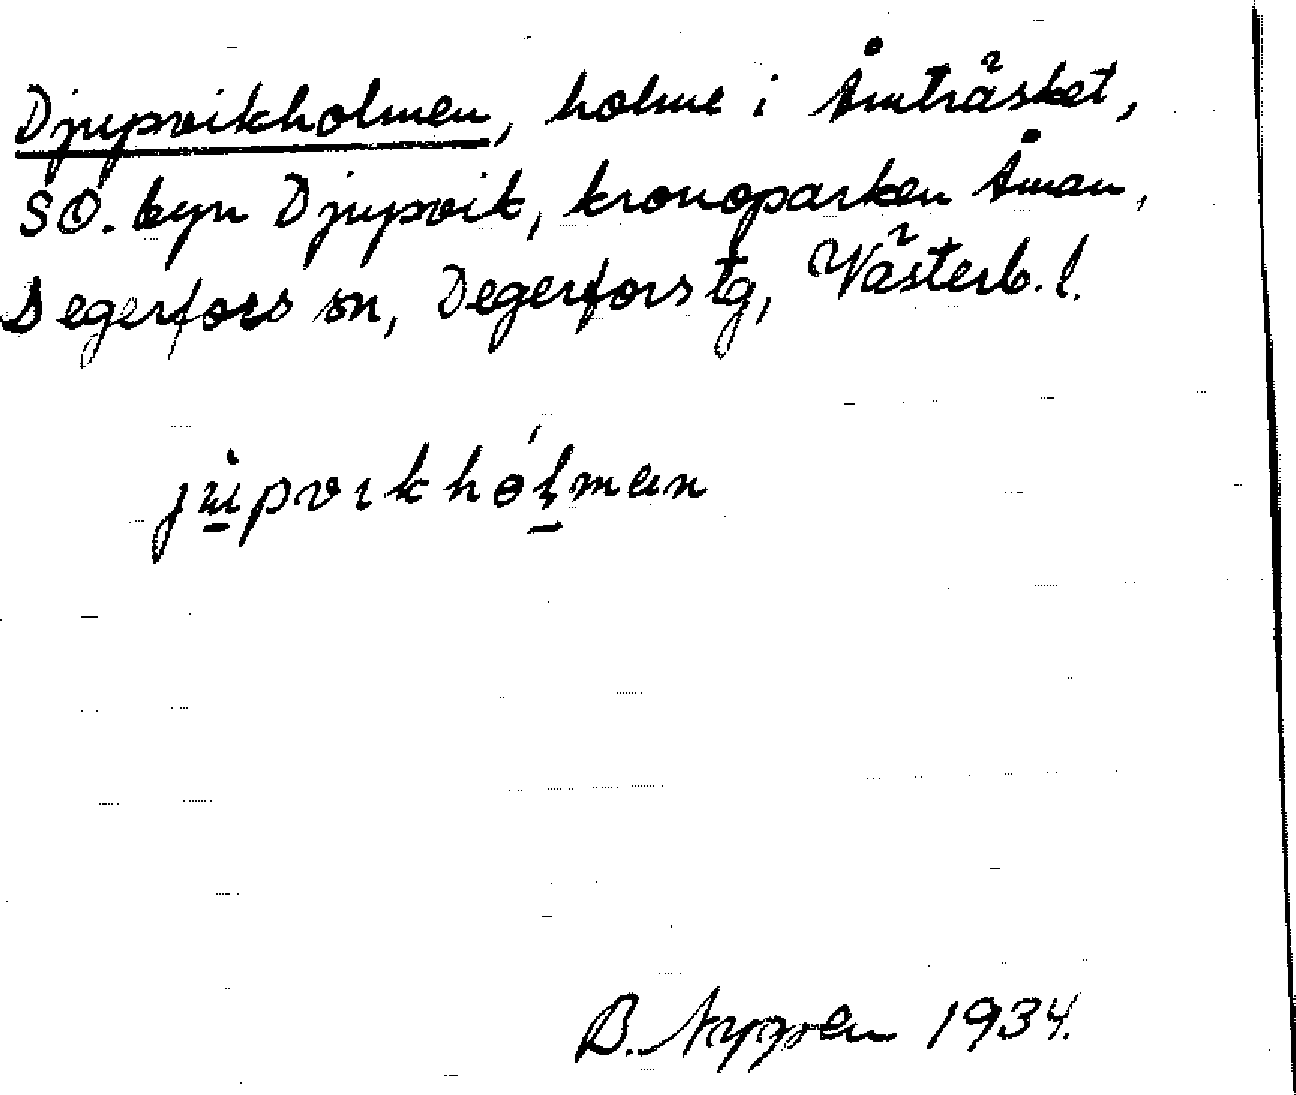 Djupvikholmen, holme i Åmträsket,
SO. byn Djupvik, kronoparken Åman,
Degerfors sn, Degerfors tg, Västerb. l.
jùpvıkhól̥mən
B. Nygren 1934.